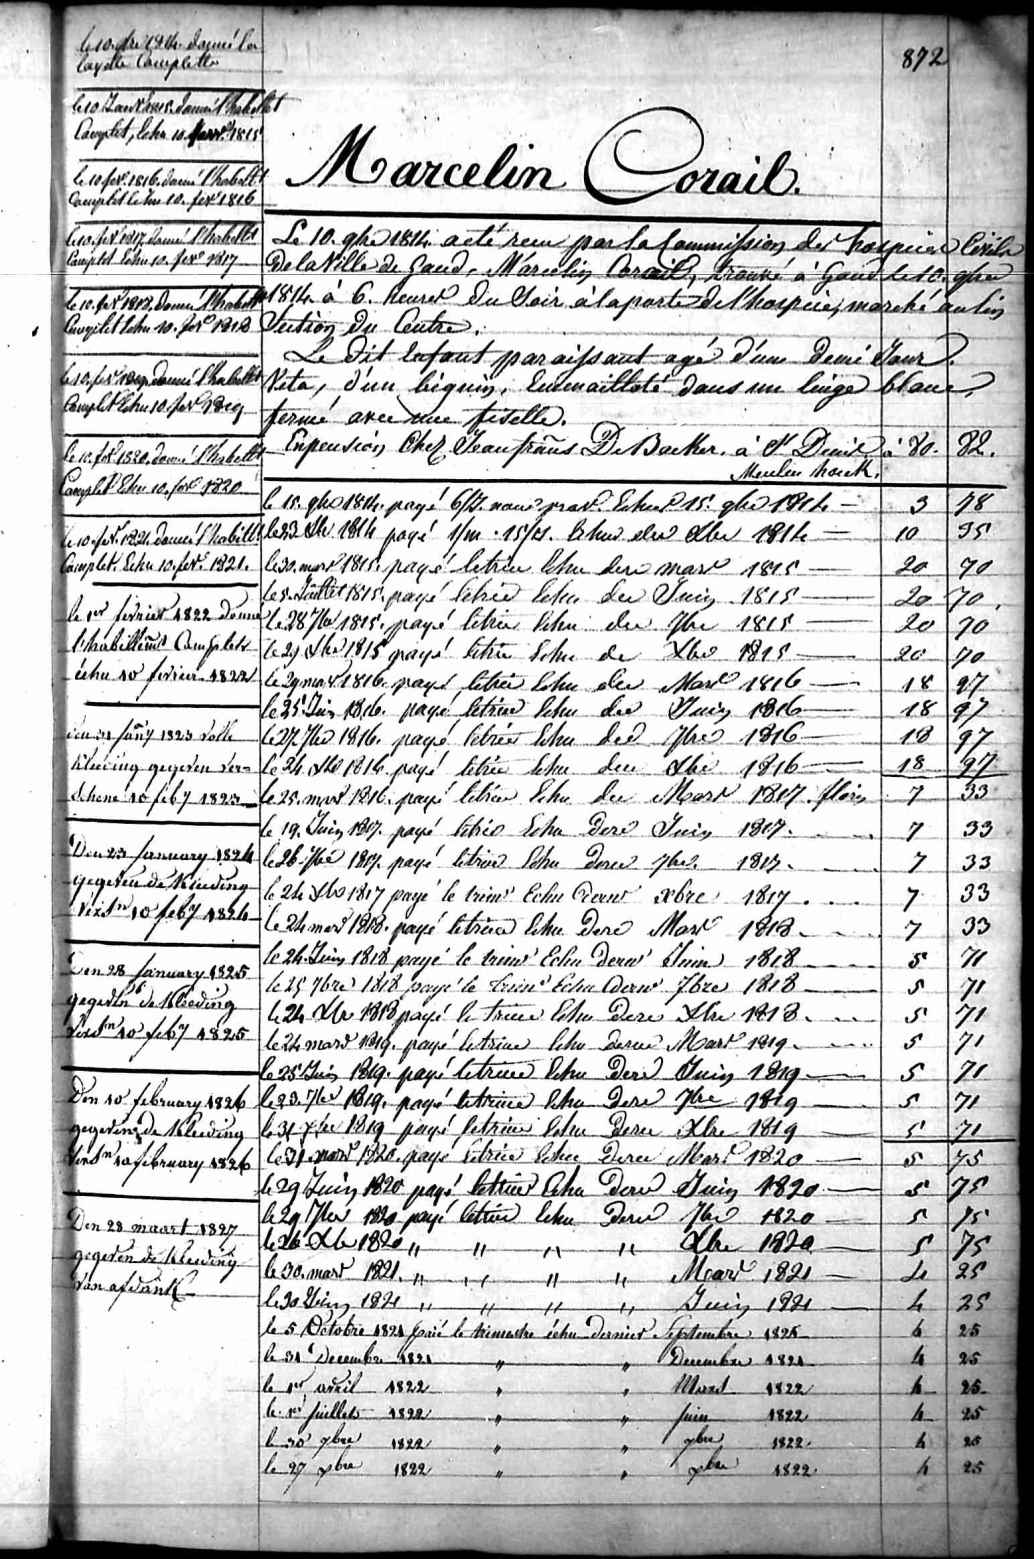 872
Marcelin Corail.
Le 10. 9bre 1814 a été recu par la Commission des hospices Civils
de la Ville de Gand, Marcelin Corail, trouvé à Gand le 10. 9bre
1814 à 6. heures du Soir à la porte de l'hospice, marché au lin
Section du Centre.
Le dit Enfant paraissant agé d'un demi Jour.
Vetu, d'un béguin, Emmailloté dans un linge blanc,
fermé avec une ficelle.
Enpension Chez Jean frans De Backer. à St Denis à 80. 82.
le 10. 9bre 1814. donné la
layette Complette
le 10 Janvr 1815. donné l'habillet
Complet, Echu 10. 1815
le 10. fevr. 1816. donné l'habillt
Complet Echu 10. fevr 1816
le 10. fevr 1817. donné l'habillt
Complet Echu 10. fevr 1817
le 10. fevr 1818. donné l'habillt
Complet Echu 10. fevr 1818
le 10. fevr 1819. donné l'habillt
Complet Echu 10. fevr 1819
le 10. fevr 1820. donné l'habillt
Complet Echu 10. fevr 1820
le 10. fevr. 1821. donné l'habillt
Complet. Echu 10. fevr. 1821.
le 1er février 1822 donné
l'habillemt Complet
échu 10 fevrier 1822
den 31 Jany 1823 volle
kleeding gegeven ver-
schene 10 feby 1823
Den 23 January 1824
gegeven de kleeding
10 feby 1824
Den 28 January 1825
gegeven de kleeding
10 feby 1825
Den 10 february 1826
gegeven de kleeding
10 february 1826
Den 28 maart 1827
gegeven de kleeding
van afdank
le 15. 9bre 1814. payé Echu 15. 9bre 1814 3 78
le 23 Xbre 1814 payé 1/m. 15/js. Echu der Xbre 1814 10 35
le 30. mars 1815. payé le trire Echu der mars 1815 20 70
le 5. Juillet 1815. payé le trire Echu der Juin 1815 20 70.
le 28 7bre 1815. payé le trire Echu der 7bre 1815 20 70
le 29 Xbre 1815 payé le trire Echu de Xbre 1815 20 70
le 29 mars 1816. payé le trire Echu der Mars 1816 18 97
le 25 Juin 1816. payé le trire Echu der Juin 1816 18 97
le 27. 7bre 1816. payé le trire Echu der 7bre 1816 18 97
le 24 Xbre 1816. payé le trire Echu der Xbre 1816 18 97
le 25. mars 1816. payé le trire Echu der Mars 1817. florin 7 33
le 19. Juin 1817. payé le trire Echu derr Juin 1817. 7 33
le 26. 7bre 1817. payé le trire Echu derr 7bre. 1817. 7 33
le 24 Xbre 1817 payé le trimr Echu dernr xbre 1817. 7 33
le 24 mars 1818. payé le trire Echu derr Mars 1818. 7 33
le 24. Juin 1818 payé le trimr Echu dernr Juin 1818 5 71
le 25 7bre 1818 payé le trimr Echu dernr 7bre 1818 5 71
le 24 Xbre 1818 payé le trire Echu derr Xbre 1818. 5 71
le 24 mars 1819. payé le trire Echu derr Mars 1819. 5 71
le 25 Juin 1819. payé le trire Echu derr Juin 1819 5 71
le 23. 7bre 1819. payé le trire Echu derr 7bre 1819 5 71
le 31 Xbre 1819 payé le trire Echu derr Xbre 1819 5 71
le 31 mars 1820. payé le trire Echu derr Mars 1820 5 75
le 29 Juin 1820 payé le trire Echu derr Juin 1820 5 75
le 29 7bre 1820 payé le trire Echu derr 7bre 1820 5 75
le 26 Xbre 1820 " " " " Xbre 1820 5 75
le 30. mars 1821. " " " " Mars 1821 4 25
le 30 Juin 1821 " " " " Juin 1821 4 25
le 5 Octobre 1821 paié le trimestre échu dernier Septembre 1821 4 25
le 31 Decembre 1821 " " Decembre 1821 4 25
le 1er avril 1822 " " Mars 1822 4 25
le 1er Juillet 1822 " " Juin 1822 4 25
le 30 7bre 1822 " " 7bre 1822 4 25
le 27 xbre 1822 " " xbre 1822 4 25